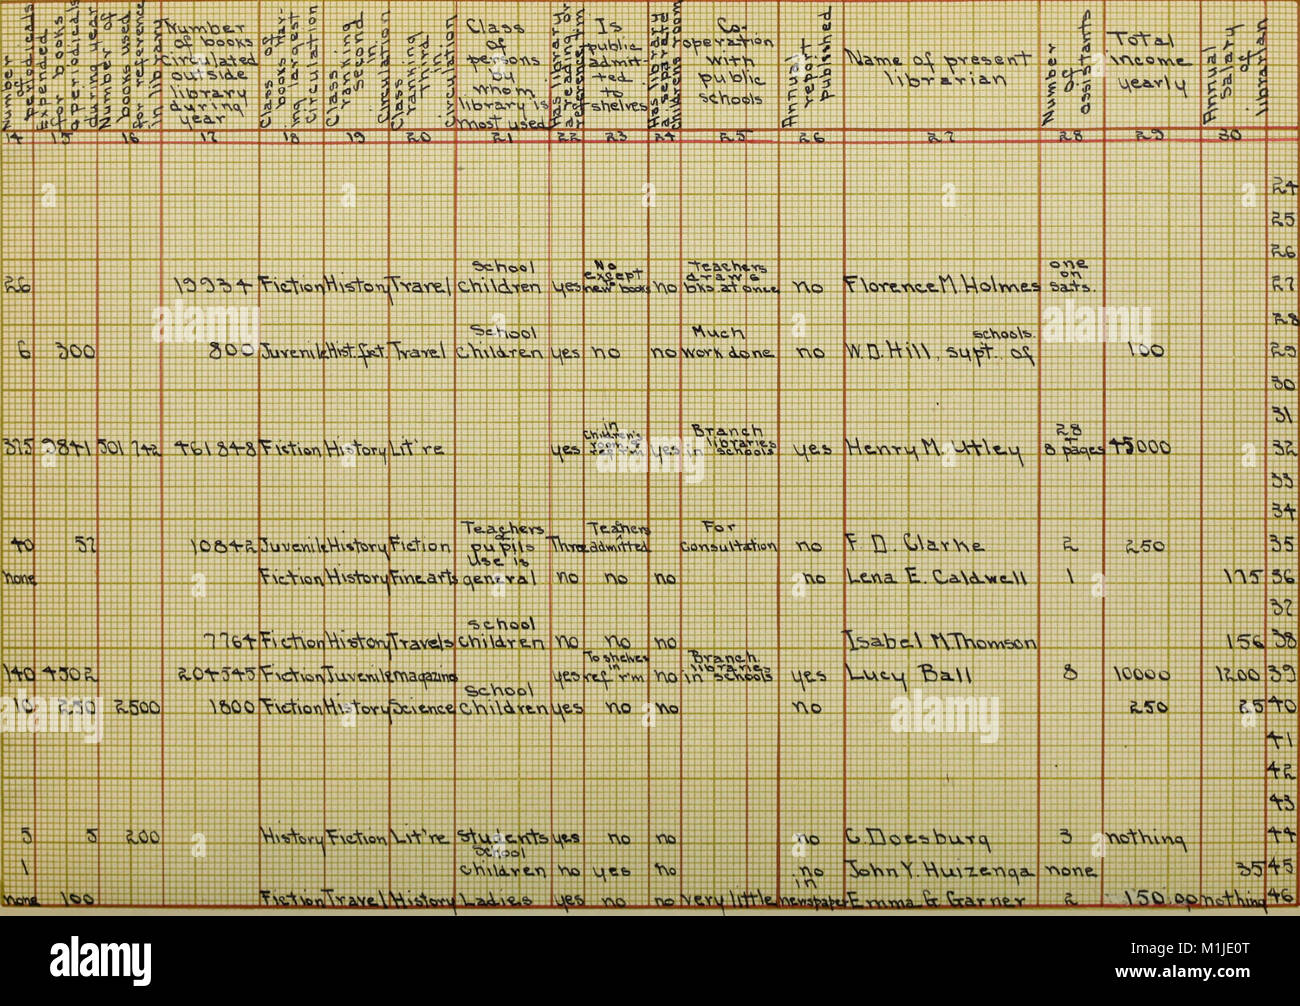 Number of periodicals
Expended for books & periodicals during year
Number of books used for reference in library
Number of books circulated outside library during year
Class of books Having largest circulation
Class ranking second in circulation
Class ranking third in circulation
Class of persons by whom library is most used
Has library a reading or reference r'm
Is public admitted to shelves
Has library a separate childrens room
Co-operation with public schools
Annual report published
Name of present librarian
Number of assistants
Total income yearly
Annual salary of librarian
14 15 16 17 18 19 20 21 22 23 24 25 26 27 28 29 30
24
25
26
26 19934 Fiction History Travel School children yes No except new books no Teachers draw 6 bks. at once no Florence M. Holmes one on sats. 27
28
6 300 800 Juvenile Hist. fict. Travel School children yes no no Much work done no W. D. Hill, supt. of schools. 100 29
30
31
375 9841 301 742 461848 Fiction History Lit're yes in Children's room & ref r'm yes Branch libraries in schools yes Henry M. Utley 28 + 8 pages 45000 32
33
34
40 57 10842 Juvenile History Fiction Teachers pupils Three Teachers admitted For consultation no F. D. Clarke 2 250 35
none Fiction History Fine arts use is general no no no no Lena E. Caldwell 1 175 36
37
7764 Fiction History Travels school children no no no Isabel M. Thomson 156 38
140 4502 204545 Fiction Juvenile magazine yes To shelves in ref r'm no Branch libraries in schools yes Lucy Ball 8 10000 1200 39
10 250 2500 1800 Fiction History Science School children yes no no no 250 25 40
41
42
43
5 5 200 History Fiction Lit're Students yes no no no C. Doesburg 3 nothing 44
1 School children no yes no no John Y. Huizenga none 35 45
none 100 Fiction Travel History Ladies yes no no very little in newspaper Emma G Garner 2 150.00 nothing 46
alamy
alamy stock photo
M1JE0T
www.alamy.com